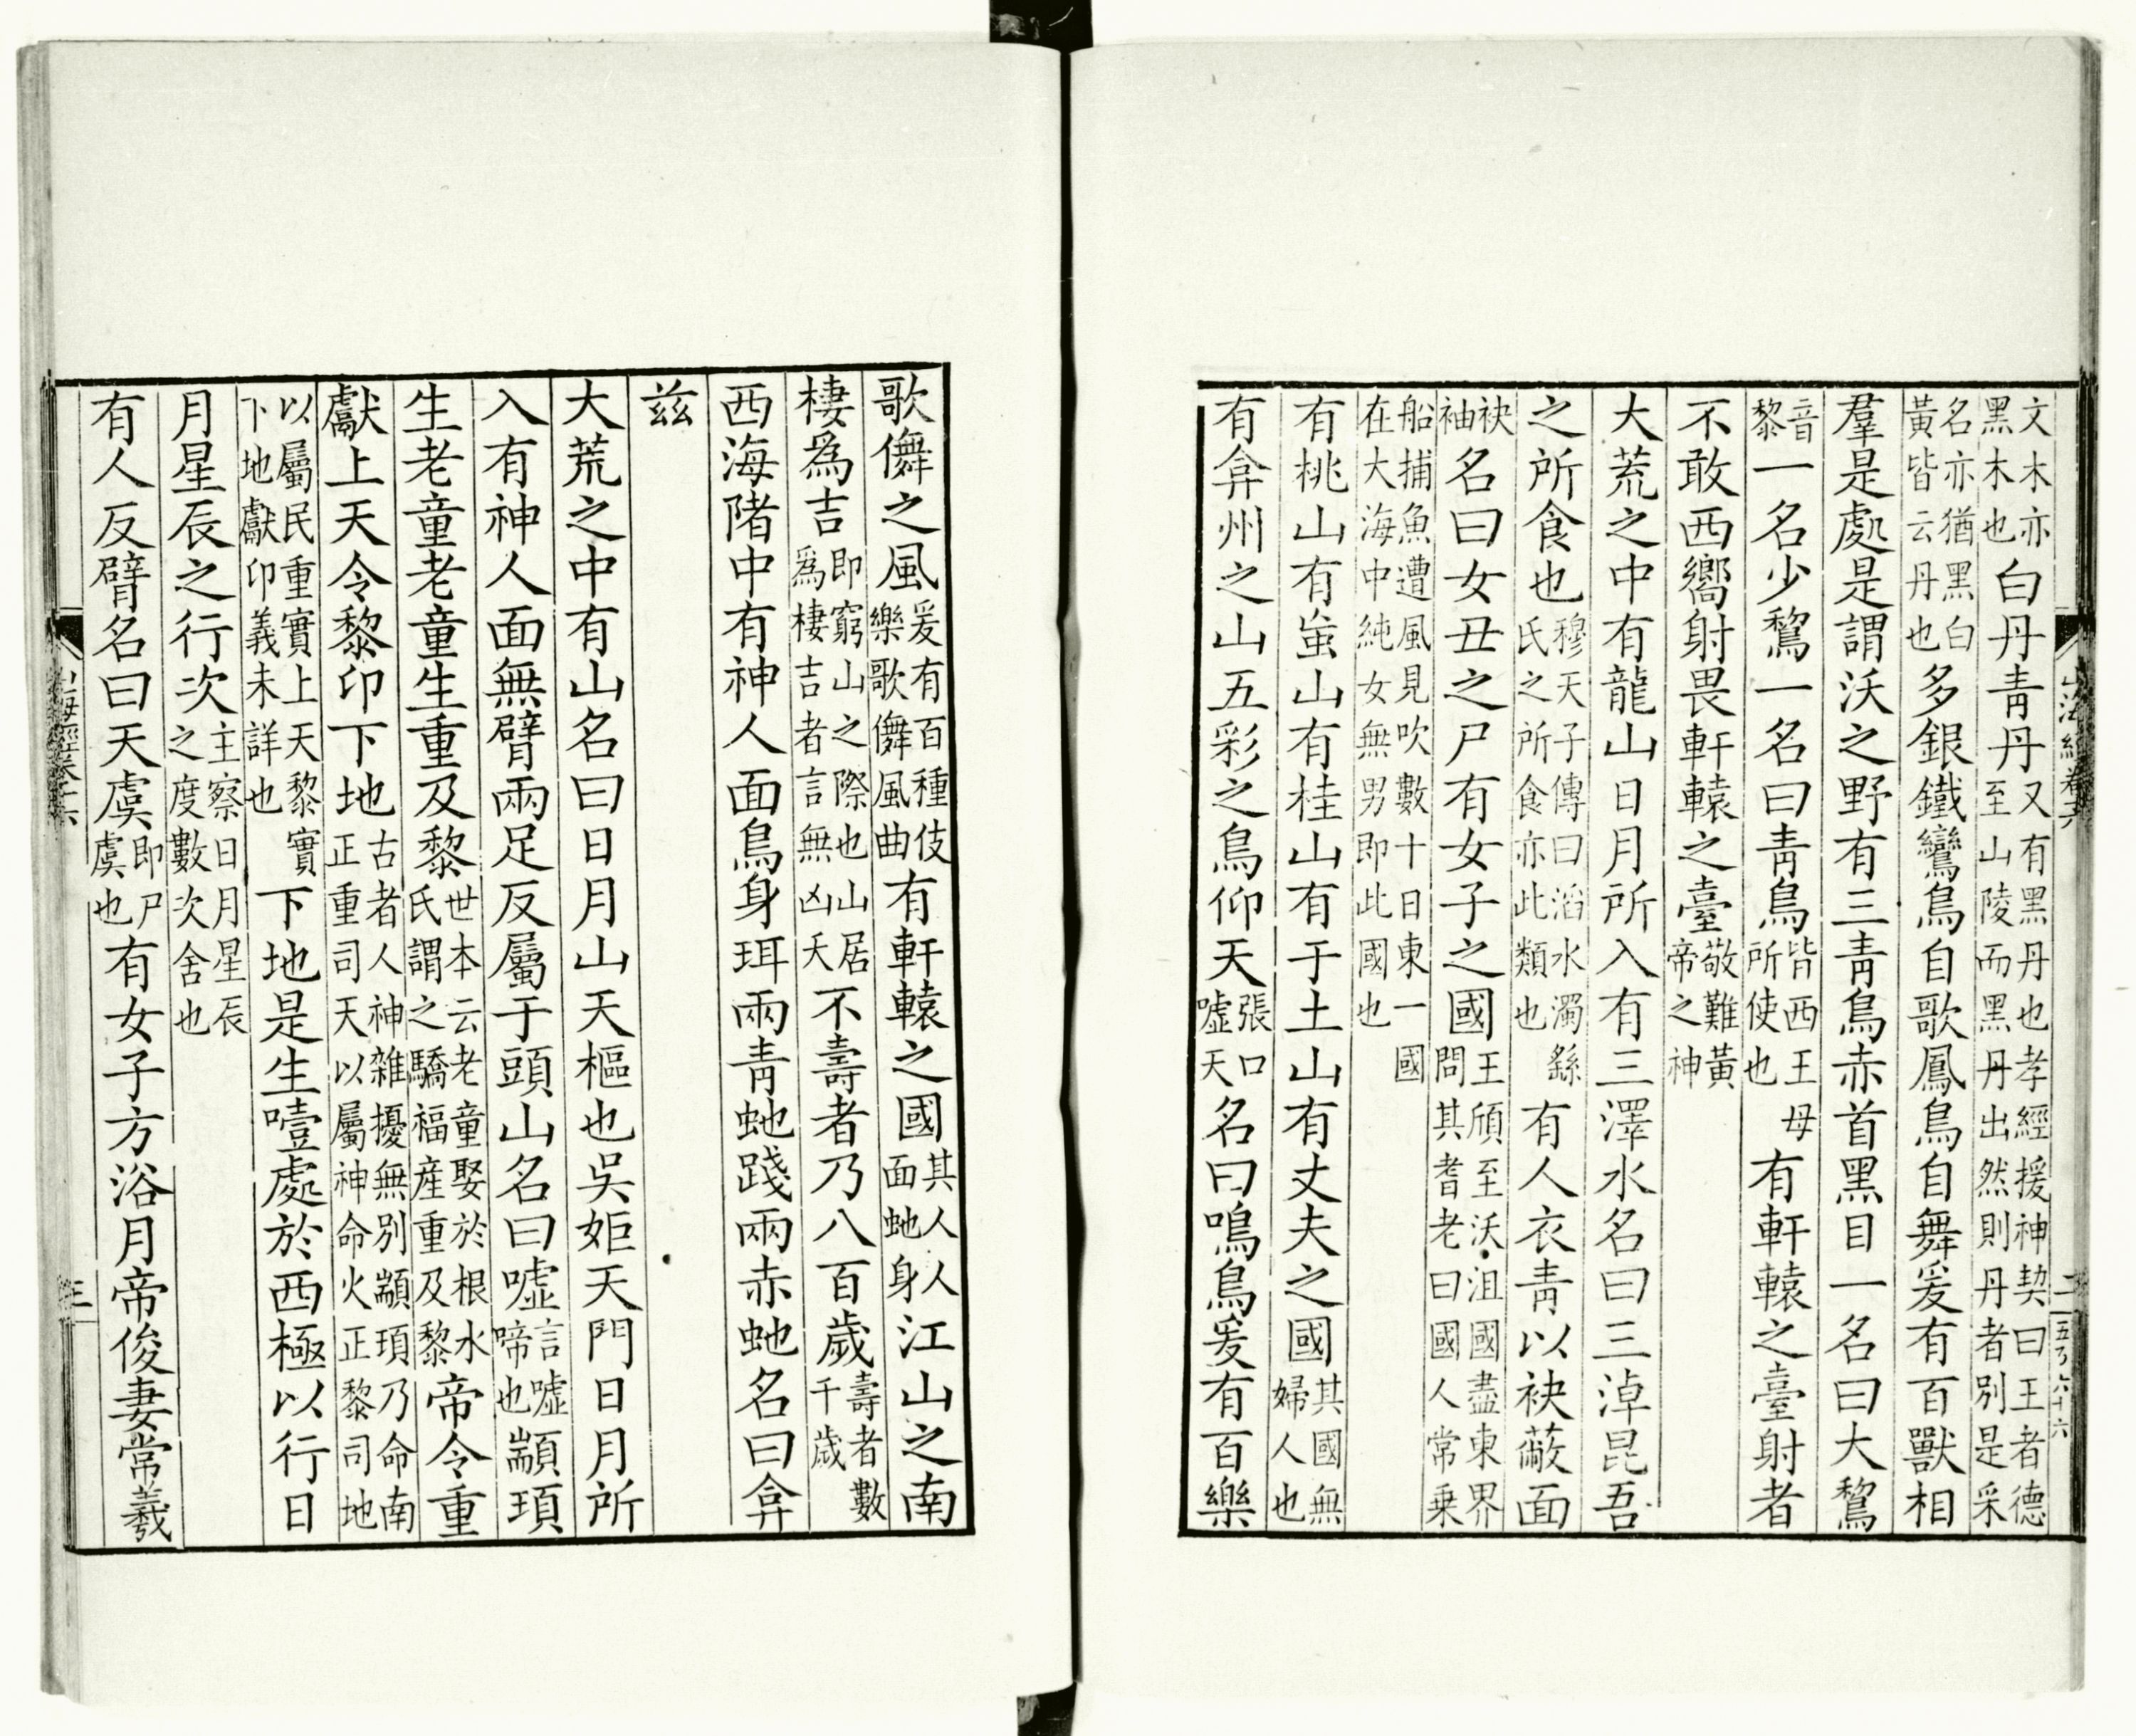 文木亦黑木也白丹青丹又有黑丹也孝經援神契曰王者德至山陵而黑丹出然則丹者別是采
名亦猶黑白黃皆云丹也多銀鐵鸞鳥自歌鳳鳥自舞爰有百獸相
羣是處是謂沃之野有三青鳥赤首黑目一名曰大鵹
音黎一名少鵹一名曰青鳥皆西王母所使也有軒轅之臺射者
不敢西嚮射畏軒轅之臺敬難黃帝之神
大荒之中有龍山日月所入有三澤水名曰三淖昆吾
之所食也穆天子傳曰滔水濁繇氏之所食亦此類也有人衣青以袂蔽面
袂袖名曰女丑之尸有女子之國王頎至沃沮國盡東界問其耆老曰國人常乗
船捕魚遭風見吹數十日東一國在大海中純女無男即此國也
有桃山有䖟山有桂山有于土山有丈夫之國其國無婦人也
有弇州之山五彩之鳥仰天張口噓天名曰鳴鳥爰有百樂
山海經卷十六
二
歌儛之風爰有百種伎樂歌儛風曲有軒轅之國其人人面虵身江山之南
棲為吉即窮山之際也山居為棲吉者言無凶夭不壽者乃八百歲壽者數千歲
西海陼中有神人面鳥身珥兩青虵踐兩赤虵名曰弇
茲
大荒之中有山名曰日月山天樞也吳姖天門日月所
入有神人面無臂兩足反屬于頭山名曰噓言噓啼也顓頊
生老童老童生重及黎世本云老童娶於根水氏謂之驕福産重及黎帝令重
獻上天令黎卬下地古者人神雜擾無別顓頊乃命南正重司天以屬神命火正黎司地
以屬民重實上天黎實下地獻卬義未詳也下地是生噎處於西極以行日
月星辰之行次主察日月星辰之度數次舍也
有人反臂名曰天虞即尸虞也有女子方浴月帝俊妻常羲
三